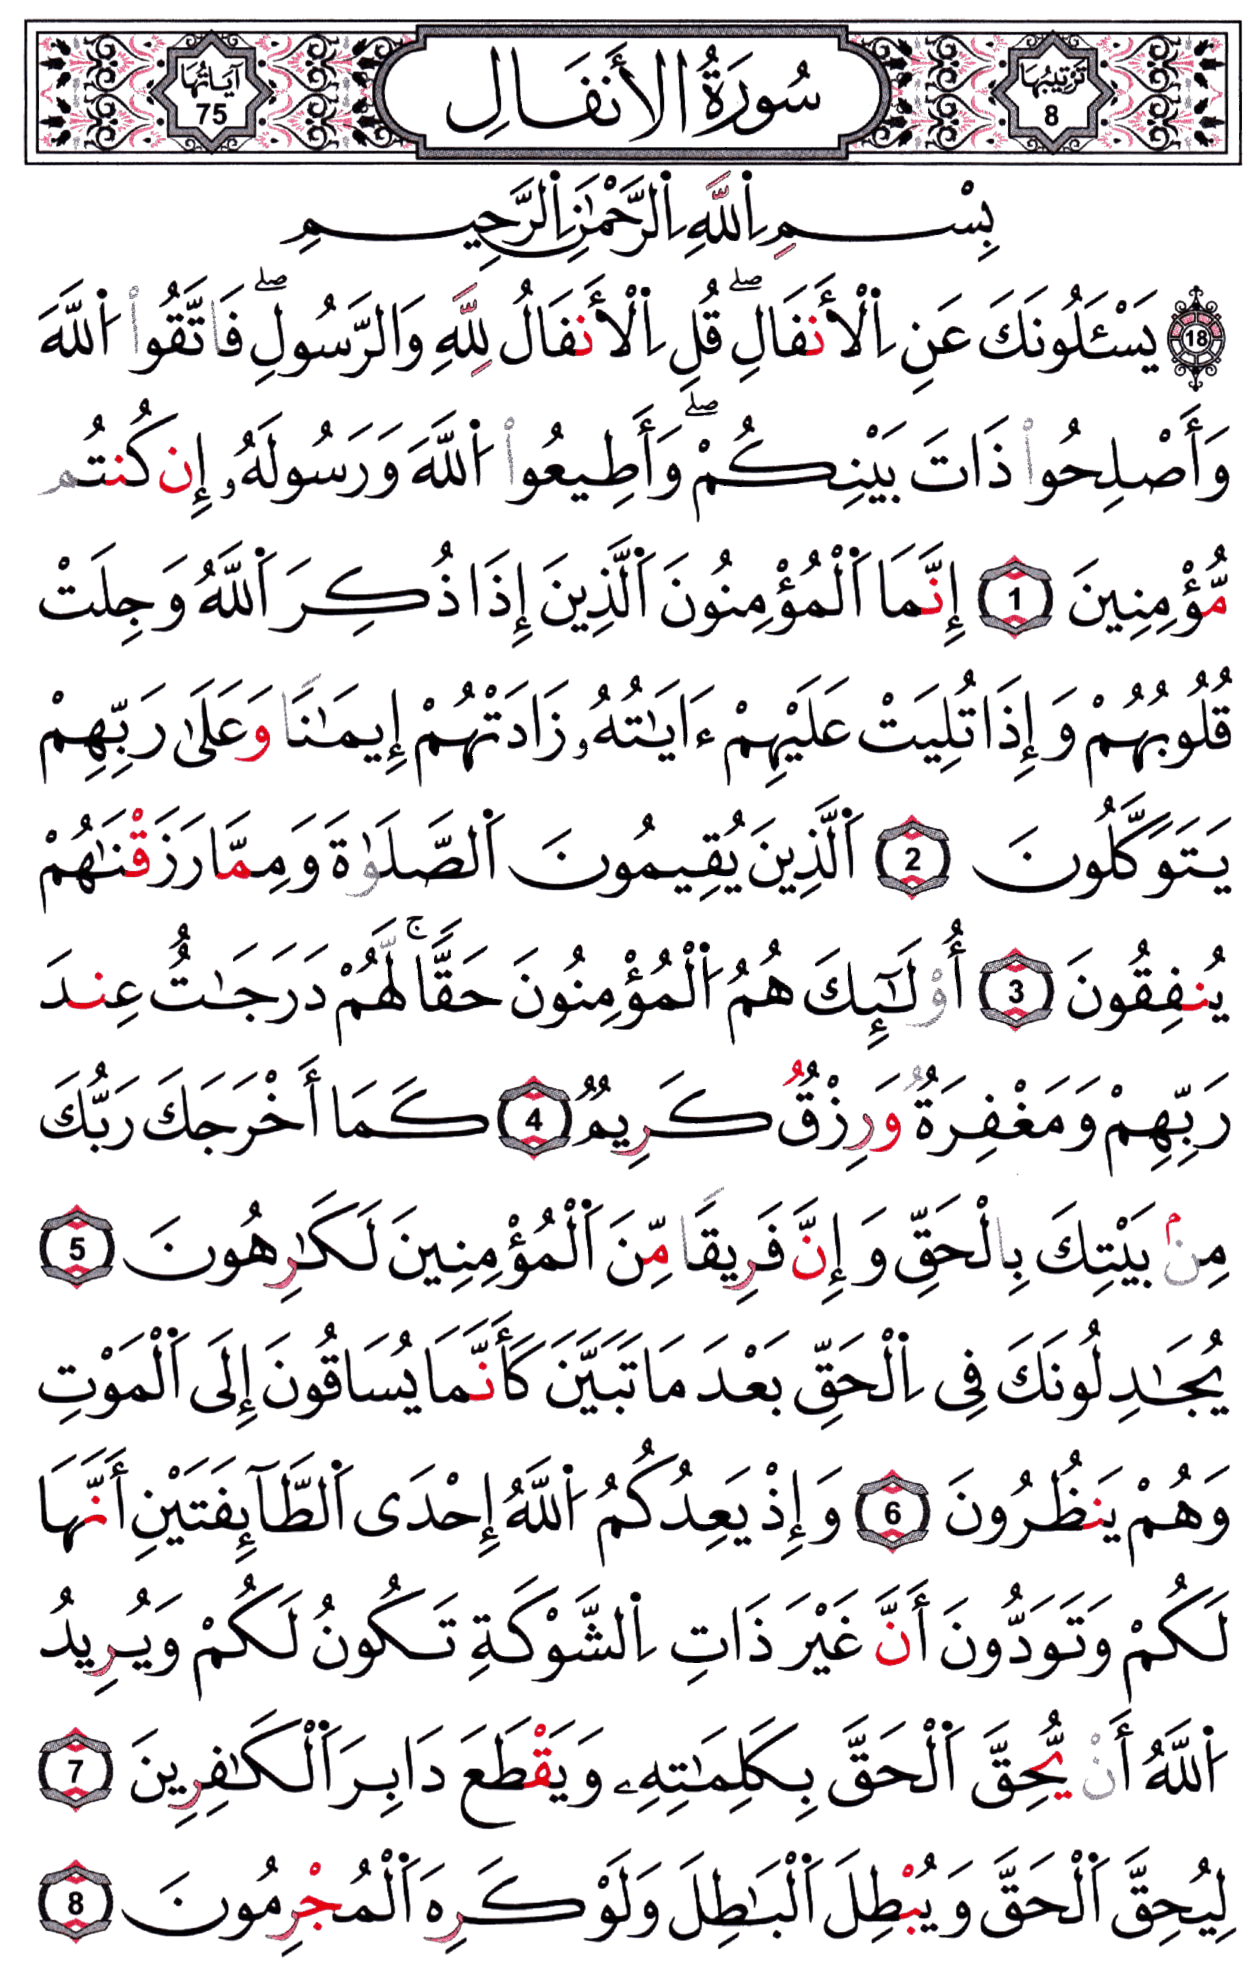 تَرْتِيبُهَا 8 سُورَةُ الأَنفَالِ آيَاتُهَا 75
بِسْمِ اِ۬للَّهِ اِ۬لرَّحْمَٰنِ اِ۬لرَّحِيمِ
18 يَسْـَٔلُونَكَ عَنِ اِ۬لْأَنفَالِۖ قُلِ اِ۬لْأَنفَالُ لِلَّهِ وَالرَّسُولِۖ فَاتَّقُواْ اُ۬للَّهَ
وَأَصْلِحُواْ ذَاتَ بَيْنِكُمْۖ وَأَطِيعُواْ اُ۬للَّهَ وَرَسُولَهُۥ إِن كُنتُم
مُّؤْمِنِينَ 1 إِنَّمَا اَ۬لْمُؤْمِنُونَ اَ۬لَّذِينَ إِذَا ذُكِرَ اَ۬للَّهُ وَجِلَتْ
قُلُوبُهُمْ وَإِذَا تُلِيَتْ عَلَيْهِمْ ءَايَٰتُهُۥ زَادَتْهُمْ إِيمَٰنًا وَعَلَىٰ رَبِّهِمْ
يَتَوَكَّلُونَ 2 اَ۬لَّذِينَ يُقِيمُونَ اَ۬لصَّلَوٰةَ وَمِمَّا رَزَقْنَٰهُمْ
يُنفِقُونَ 3 أُوْلَٰٓئِكَ هُمُ اُ۬لْمُؤْمِنُونَ حَقًّاۚ لَّهُمْ دَرَجَٰتٌ عِندَ
رَبِّهِمْ وَمَغْفِرَةٌ وَرِزْقٌ كَرِيمٌ 4 كَمَا أَخْرَجَكَ رَبُّكَ
مِنۢ بَيْتِكَ بِالْحَقِّ وَإِنَّ فَرِيقًا مِّنَ اَ۬لْمُؤْمِنِينَ لَكَٰرِهُونَ 5
يُجَٰدِلُونَكَ فِى اِ۬لْحَقِّ بَعْدَ مَا تَبَيَّنَ كَأَنَّمَا يُسَاقُونَ إِلَى اَ۬لْمَوْتِ
وَهُمْ يَنظُرُونَ 6 وَإِذْ يَعِدُكُمُ اُ۬للَّهُ إِحْدَى اَ۬لطَّآئِفَتَيْنِ أَنَّهَا
لَكُمْ وَتَوَدُّونَ أَنَّ غَيْرَ ذَاتِ اِ۬لشَّوْكَةِ تَكُونُ لَكُمْ وَيُرِيدُ
اُ۬للَّهُ أَنْ يُّحِقَّ اَ۬لْحَقَّ بِكَلِمَٰتِهِۦ وَيَقْطَعَ دَابِرَ اَ۬لْكَٰفِرِينَ 7
لِيُحِقَّ اَ۬لْحَقَّ وَيُبْطِلَ اَ۬لْبَٰطِلَ وَلَوْ كَرِهَ اَ۬لْمُجْرِمُونَ 8